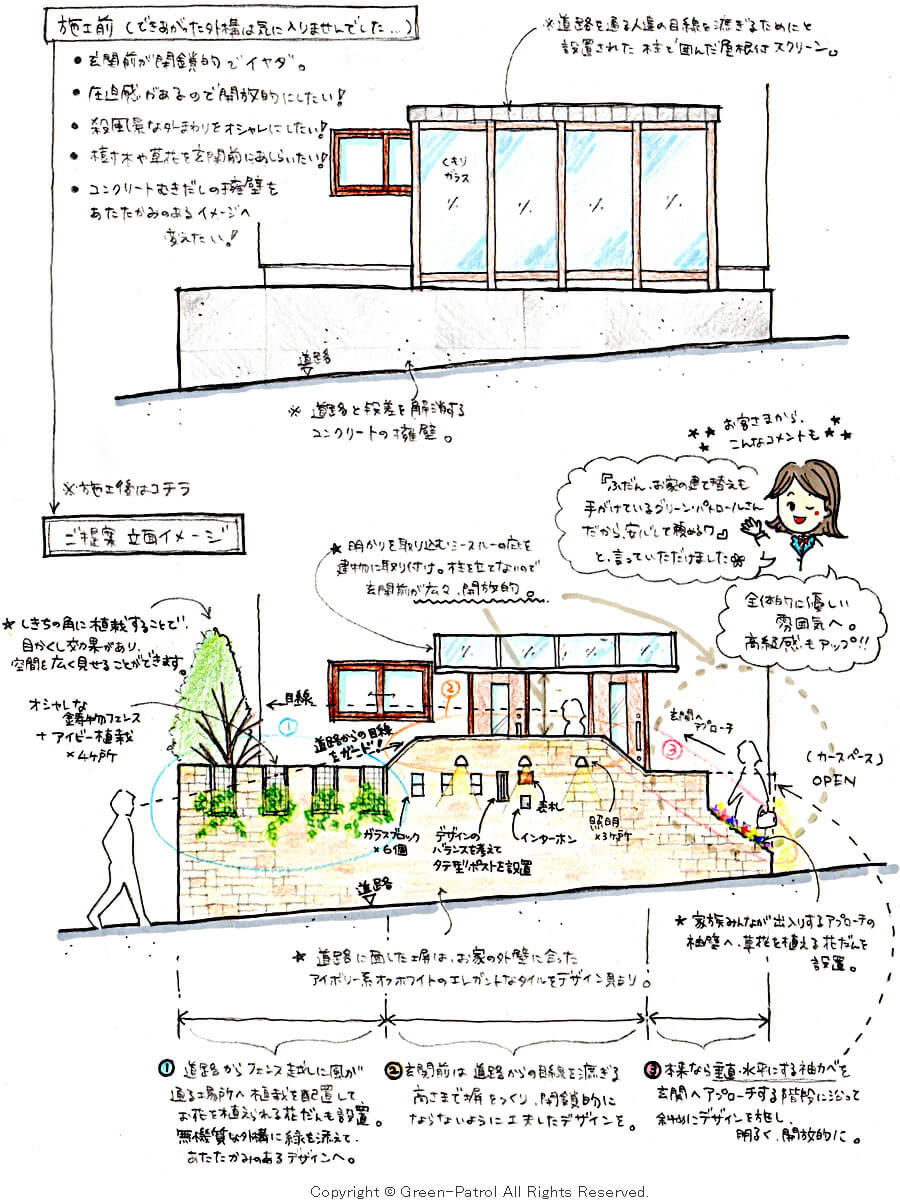 施工前 (できあがった外構は気に入りませんでした…)
• 玄関前が閉鎖的でイヤダ。
• 圧迫感があるので開放的にしたい!
• 殺風景な外まわりをオシャレにしたい!
• 樹木や草花を玄関前にあしらいたい!
• コンクリートむきだしの擁壁を
あたたかみのあるイメージへ
変えたい!
※道路を通る人達の目線を遮ぎるためにと
設置された 柱で囲んだ屋根付スクリーン。
くもり
ガラス
道路
※ 道路と段差を解消する
コンクリートの擁壁。
※施工後はコチラ
ご提案 立面イメージ
お客さまから、
こんなコメントも
『ふだん、お家の建て替えも
手がけているグリーン・パトロールさん
だから、安心して頼めるワ』
と、言っていただけました
全体的に優しい
雰囲気へ。
高級感もアップ!!
★ 明かりを取り込むシースルーの庇を
建物に取り付け。柱を立てないので
玄関前が広々、開放的。
★ しきちの角に植栽することで、
目かくし効果があり、
空間を広く見せることができます。
オシャレな
鋳物フェンス
+ アイビー植栽
×4ヶ所
目線
①
②
道路からの目線
をガード!
玄関へ
アプローチ
③
(カースペース)
OPEN
ガラスブロック
×6個
デザインの
バランスを考えて
タテ型ポストを設置
表札
インターホン
照明
×3ヶ所
道路
★ 家族みんなが出入りするアプローチの
袖壁へ、草花を植える花だんを
設置。
★ 道路に面した塀は、お家の外壁に合った
アイボリー系オフホワイトのエレガントなタイルをデザイン貼り。
① 道路からフェンス越しに風が
通る場所へ植栽を配置して、
お花を植えられる花だんも設置。
無機質な外構に緑を添えて、
あたたかみのあるデザインへ。
② 玄関前は 道路からの目線を遮ぎる
高さまで塀をつくり、閉鎖的に
ならないように工夫したデザインを。
③ 本来なら垂直・水平にする袖かべを
玄関へアプローチする階段に沿って
斜めにデザインを施し、
明るく、開放的に。
Copyright © Green-Patrol All Rights Reserved.